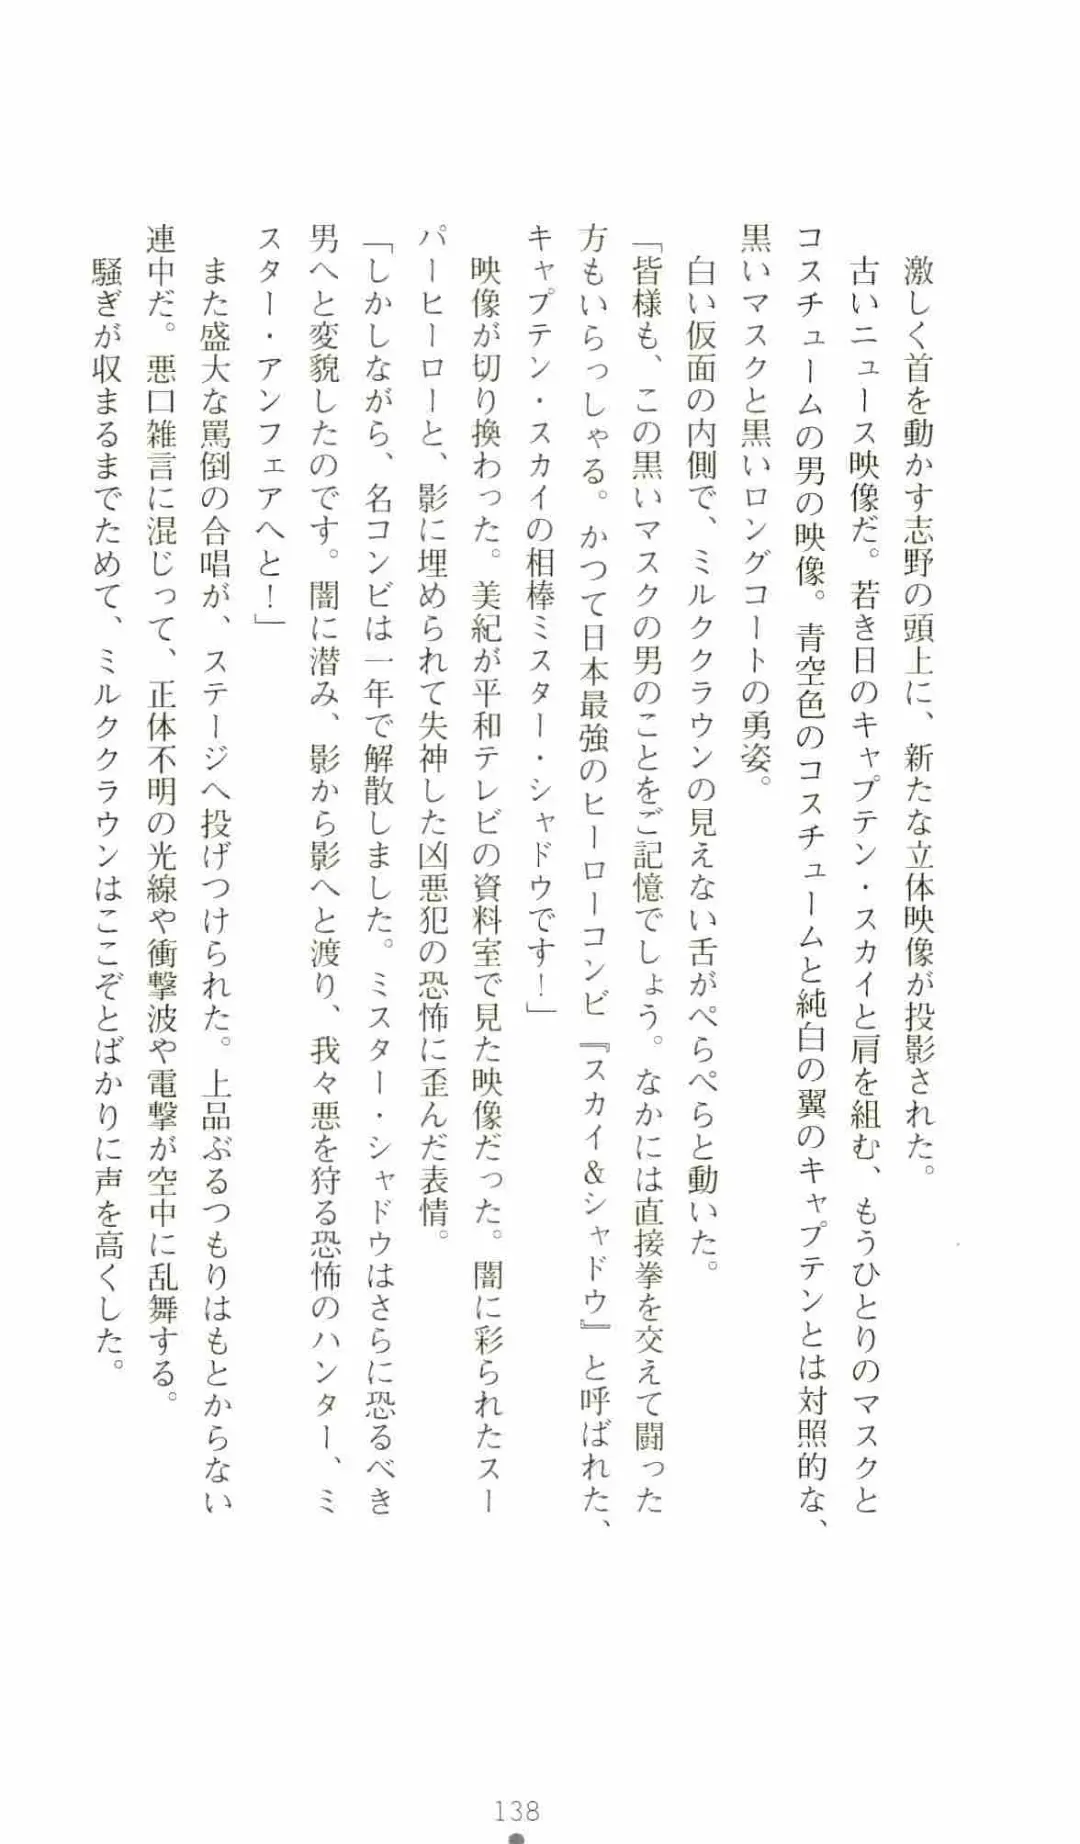 激しく首を動かす志野の頭上に、新たな立体映像が投影された。
古いニュース映像だ。若き日のキャプテン・スカイと肩を組む、もうひとりのマスクと
コスチュームの男の映像。青空色のコスチュームと純白の翼のキャプテンとは対照的な、
黒いマスクと黒いロングコートの勇姿。
白い仮面の内側で、ミルククラウンの見えない舌がぺらぺらと動いた。
「皆様も、この黒いマスクの男のことをご記憶でしょう。なかには直接拳を交えて闘った
方もいらっしゃる。かつて日本最強のヒーローコンビ『スカイ＆シャドウ』と呼ばれた、
キャプテン・スカイの相棒ミスター・シャドウです！」
映像が切り換わった。美紀が平和テレビの資料室で見た映像だった。闇に彩られたスー
パーヒーローと、影に埋められて失神した凶悪犯の恐怖に歪んだ表情。
「しかしながら、名コンビは一年で解散しました。ミスター・シャドウはさらに恐るべき
男へと変貌したのです。闇に潜み、影から影へと渡り、我々悪を狩る恐怖のハンター、ミ
スター・アンフェアへと！」
また盛大な罵倒の合唱が、ステージへ投げつけられた。上品ぶるつもりはもとからない
連中だ。悪口雑言に混じって、正体不明の光線や衝撃波や電撃が空中に乱舞する。
騒ぎが収まるまでためて、ミルククラウンはここぞとばかりに声を高くした。
138